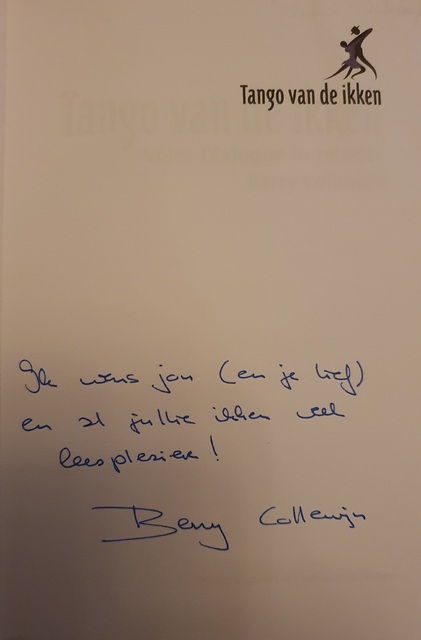 Tango van de ikken
Ik wens jou (en je lief)
en al jullie ikken veel
leesplezier!
Berry Collewijn